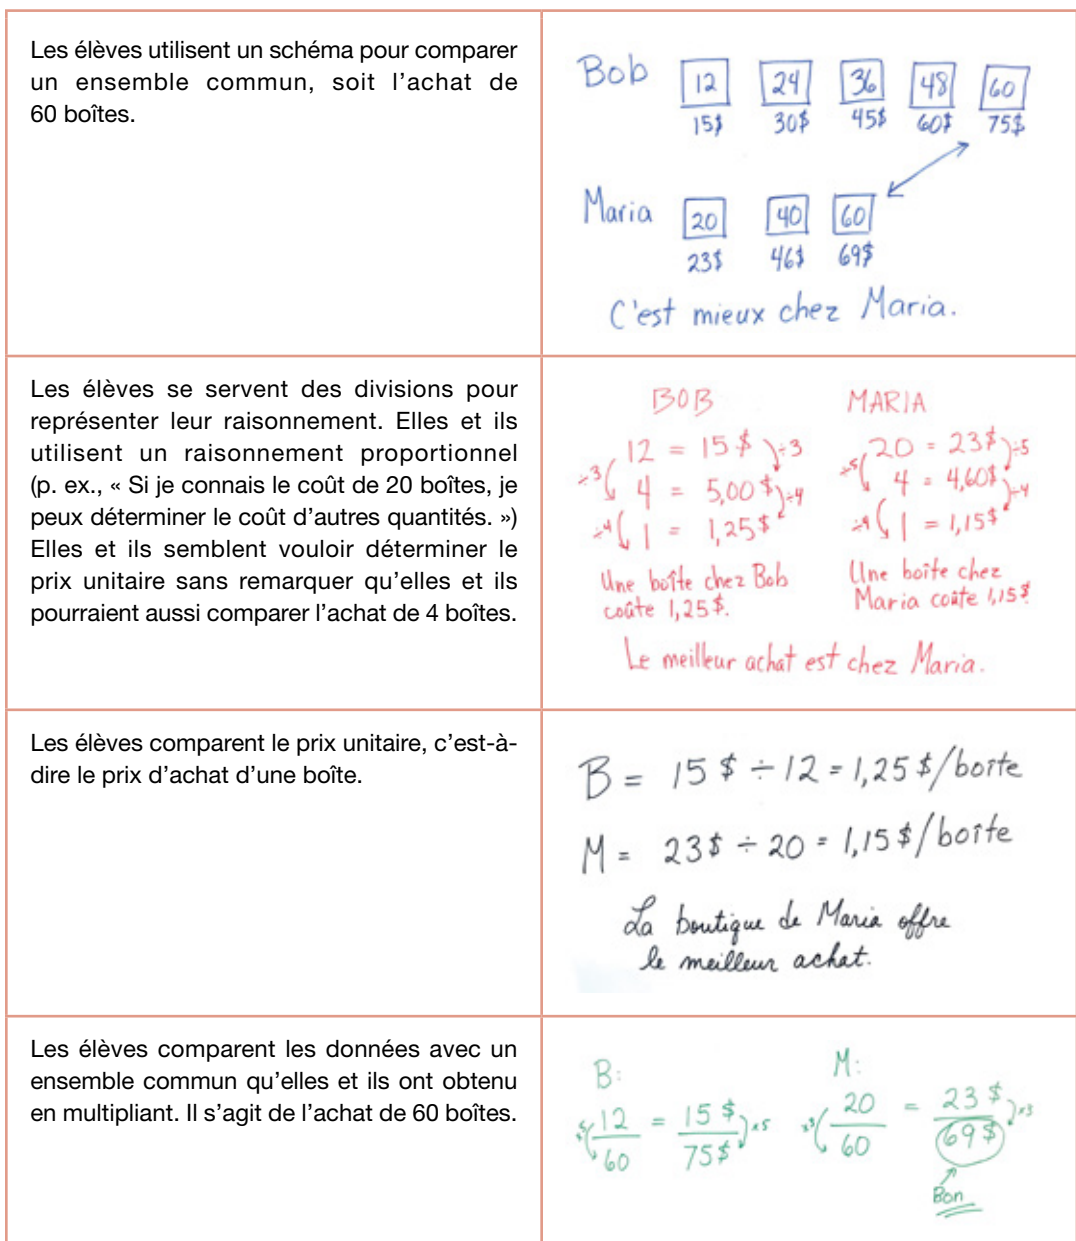 Les élèves utilisent un schéma pour comparer
un ensemble commun, soit l'achat de
60 boîtes.
Bob 12 24 36 48 60
15$ 30$ 45$ 60$ 75$
Maria 20 40 60
23$ 46$ 69$
C'est mieux chez Maria.
Les élèves se servent des divisions pour
représenter leur raisonnement. Elles et ils
utilisent un raisonnement proportionnel
(p. ex., « Si je connais le coût de 20 boîtes, je
peux déterminer le coût d'autres quantités. »)
Elles et ils semblent vouloir déterminer le
prix unitaire sans remarquer qu'elles et ils
pourraient aussi comparer l'achat de 4 boîtes.
BOB
÷3 12 = 15 $ ÷3
4 = 5,00 $ ÷4
÷4 1 = 1,25 $
Une boîte chez Bob
coûte 1,25 $.
MARIA
÷5 20 = 23 $ ÷5
4 = 4,60 $ ÷4
÷4 1 = 1,15 $
Une boîte chez
Maria coûte 1,15 $
Le meilleur achat est chez Maria.
Les élèves comparent le prix unitaire, c'est-à-
dire le prix d'achat d'une boîte.
B = 15 $ ÷ 12 = 1,25 $/boîte
M = 23 $ ÷ 20 = 1,15 $/boîte
La boutique de Maria offre
le meilleur achat.
Les élèves comparent les données avec un
ensemble commun qu'elles et ils ont obtenu
en multipliant. Il s'agit de l'achat de 60 boîtes.
B: M:
12 = 15 $ x5 x3 20 = 23 $ x3
60 75 $ 60 69 $
Bon